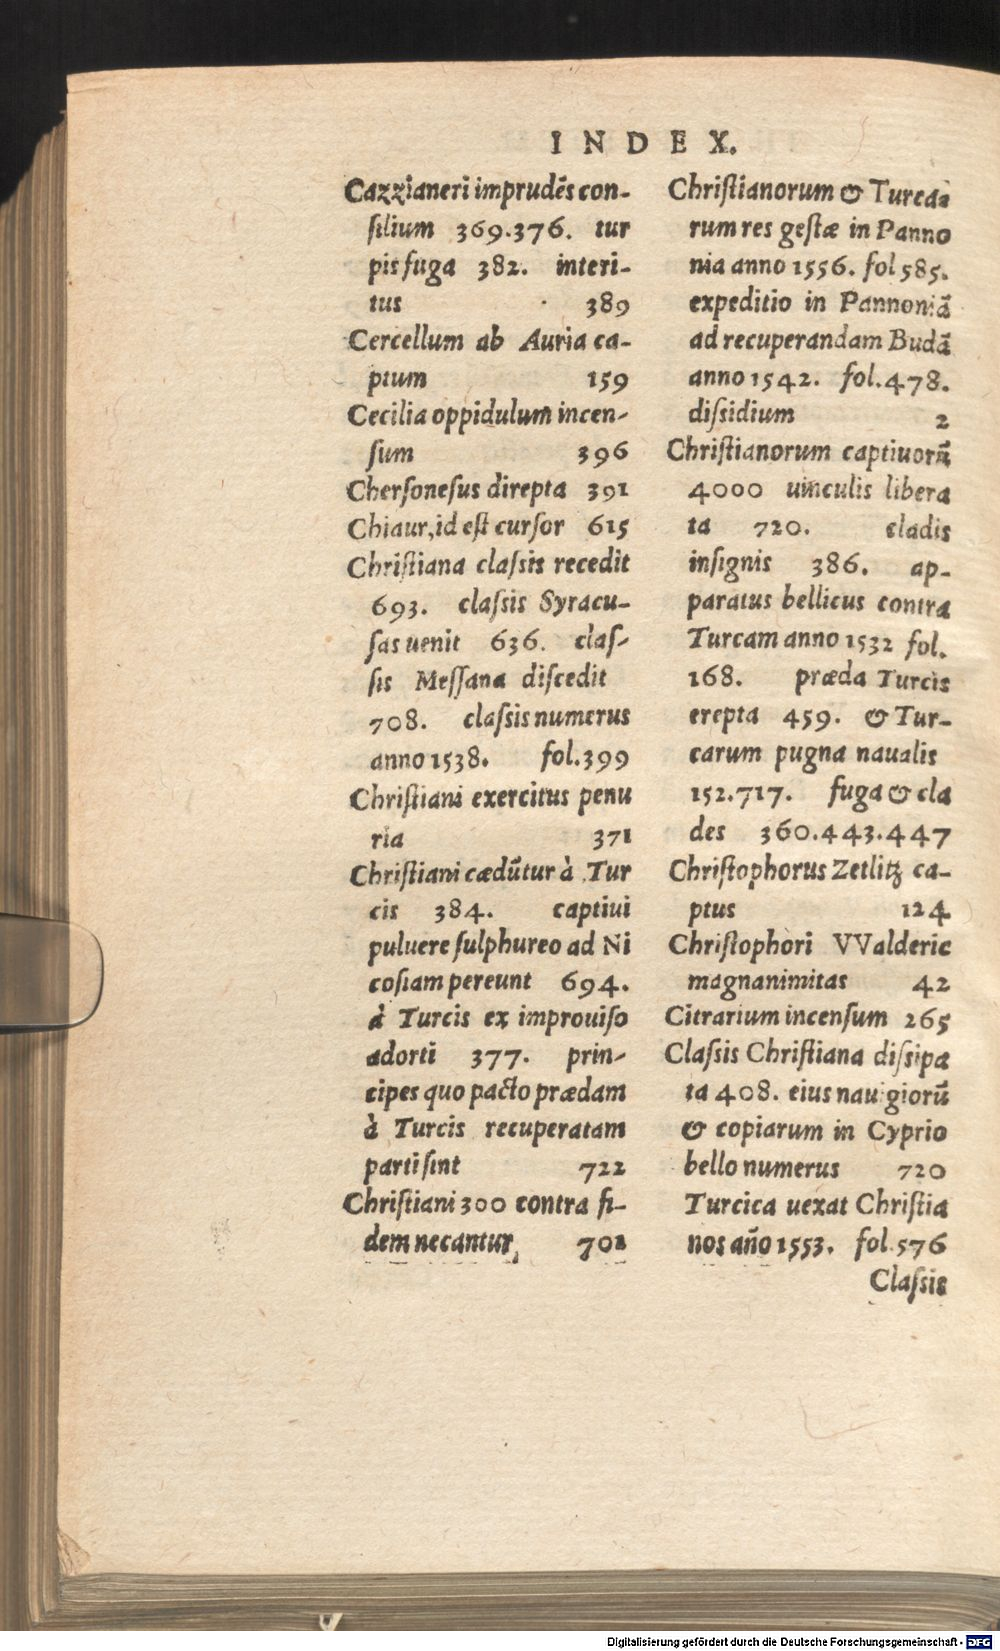 INDEX.
Cazzianeri imprudēs con-
silium 369.376. tur
pis fuga 382. interi-
tus 389
Cercellum ab Auria ca-
ptum 159
Cecilia oppidulum incen-
sum 396
Chersonesus direpta 391
Chiaur, id est cursor 615
Christiana classis recedit
693. classis Syracu-
sas uenit 636. clas-
sis Messana discedit
708. classis numerus
anno 1538. fol.399
Christiani exercitus penu
ria 371
Christiani cædūtur à Tur
cis 384. captiui
puluere sulphureo ad Ni
cosiam pereunt 694.
à Turcis ex improuiso
adorti 377. prin-
cipes quo pacto prædam
à Turcis recuperatam
parti sint 722
Christiani 300 contra fi-
dem necantur, 701
Christianorum & Turca-
rum res gestæ in Panno
nia anno 1556. fol 585.
expeditio in Pannoniā
ad recuperandam Budā
anno 1542. fol.478.
dissidium 2
Christianorum captiuorū
4000 uinculis libera
ta 720. cladis
insignis 386. ap-
paratus bellicus contra
Turcam anno 1532 fol.
168. præda Turcis
erepta 459. & Tur-
carum pugna naualis
152.717. fuga & cla
des 360.443.447
Christophorus Zetlitz ca-
ptus 124.
Christophori VValderic
magnanimitas 42
Citrarium incensum 265
Classis Christiana dissipa
ta 408. eius nauigiorū
& copiarum in Cyprio
bello numerus 720
Turcica uexat Christia
nos año 1553. fol.576
Classis
Digitalisierung gefördert durch die Deutsche Forschungsgemeinschaft - DFG